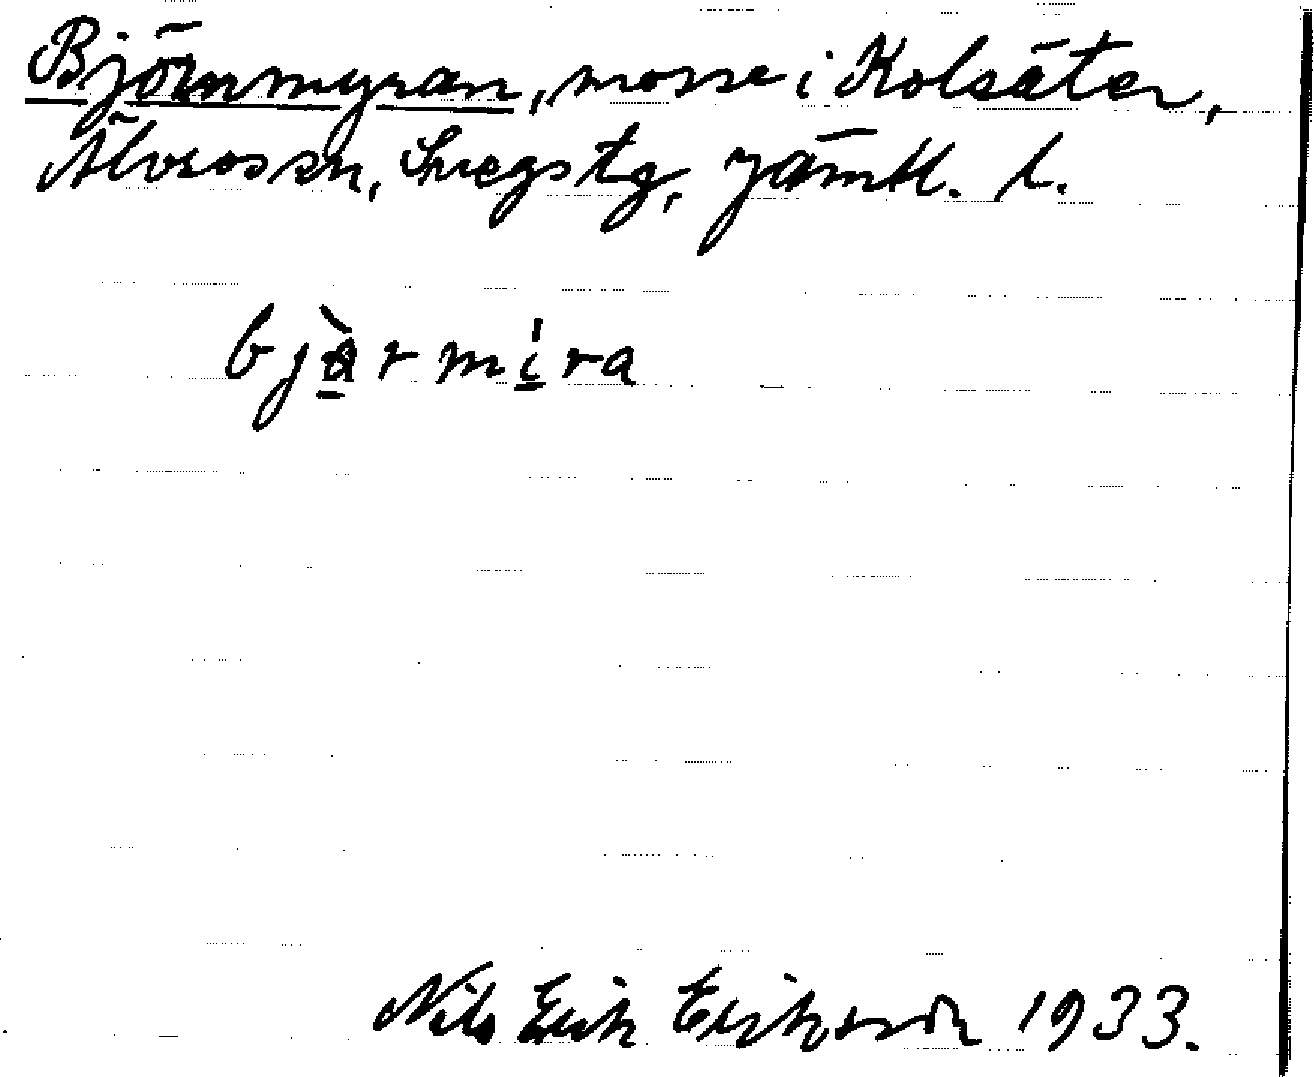 Björnmyran, mosse i Kolsäter,
Älvros sn, Svegs tg, Jämtl. l.
bjὰrmíra
Nils Erik Eriksson 1933.